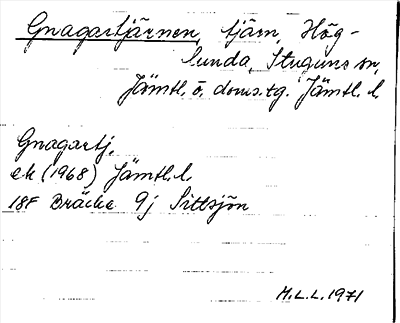 Gnagartjärnen, tjärn, Hög-
lunda, Stuguns sn,
Jämtl. ö. doms.tg. Jämtl. l.
Gnagartj.
ek (1968) Jämtl. l.
18F Bräcke 9j Sittsjön
M.L.L. 1971